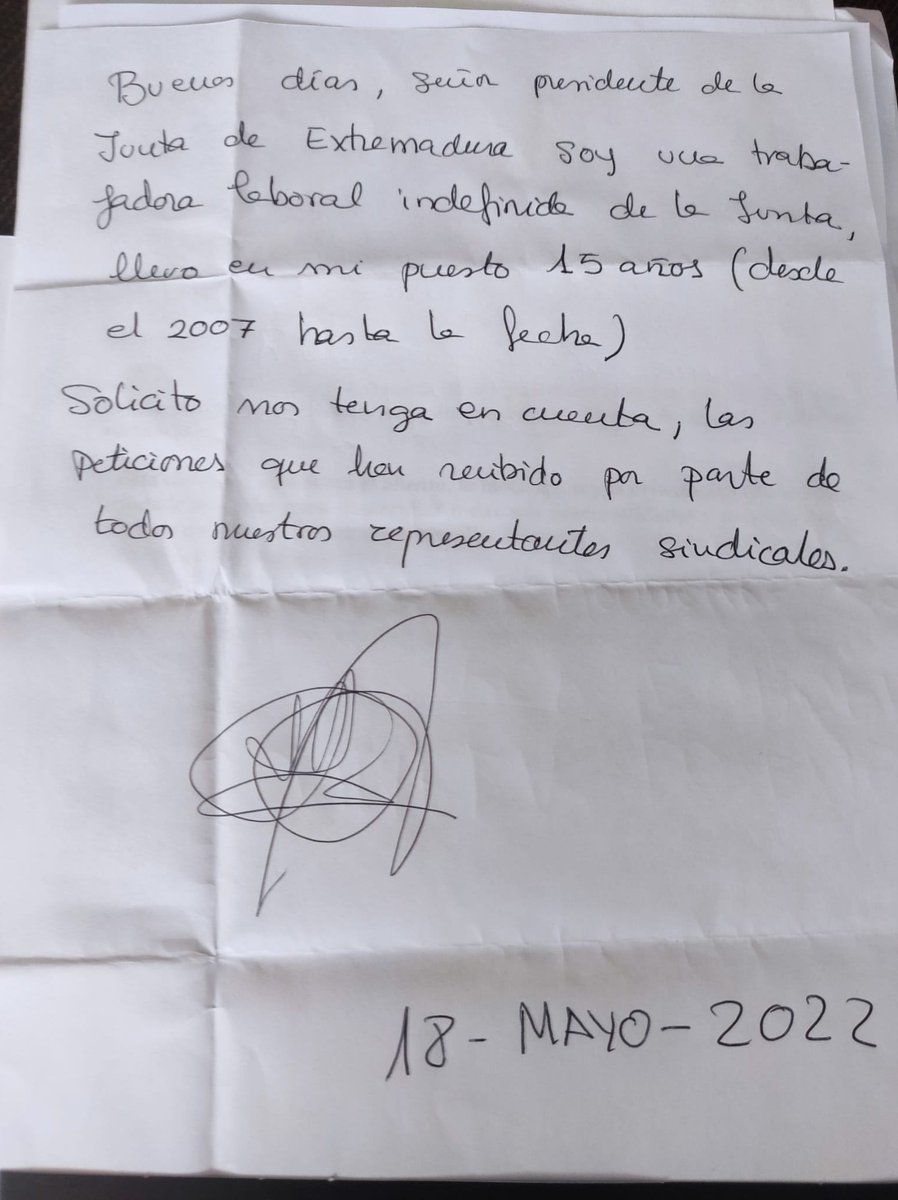 Buenos días, señor presidente de la
Junta de Extremadura soy una traba-
jadora laboral indefinida de la Junta,
llevo en mi puesto 15 años (desde
el 2007 hasta la fecha)
Solicito nos tenga en cuenta, las
peticiones que han recibido por parte de
todos nuestros representantes sindicales.
18-MAYO-2022